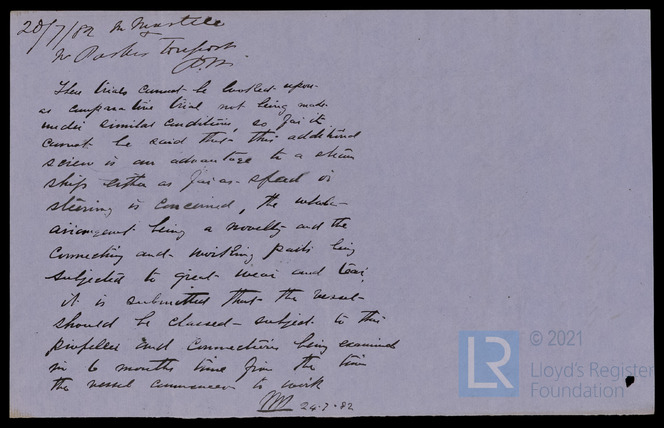 20/7/82 Mr Martell
&
Mr Parker to report
These trials cannot be looked upon
as comparative trial not being made
under similar conditions, so far it
cannot be said that this additional
screw is an advantage to a steam
ship either as far as speed or
steering is concerned, the whole
arrangement being a novelty and the
connecting and working parts being
subjected to great wear and tear,
it is submitted that the vessel
should be classed subject to this
propeller and connections being examined
in 6 months time from the time
the vessel commences to work
24.7.82
LR
© 2021
Lloyd's Register
Foundation